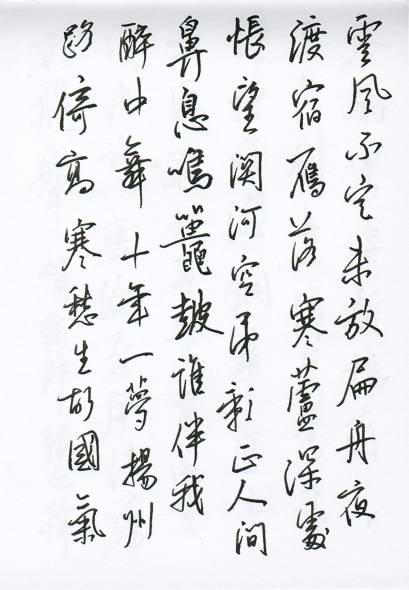 雲風不定未放扁舟夜
渡宿雁落寒蘆深處
悵望関河空弔影正人间
鼻息鳴鼉皷誰伴我
醉中舞十年一夢揚州
路倚高寒愁生故國氣